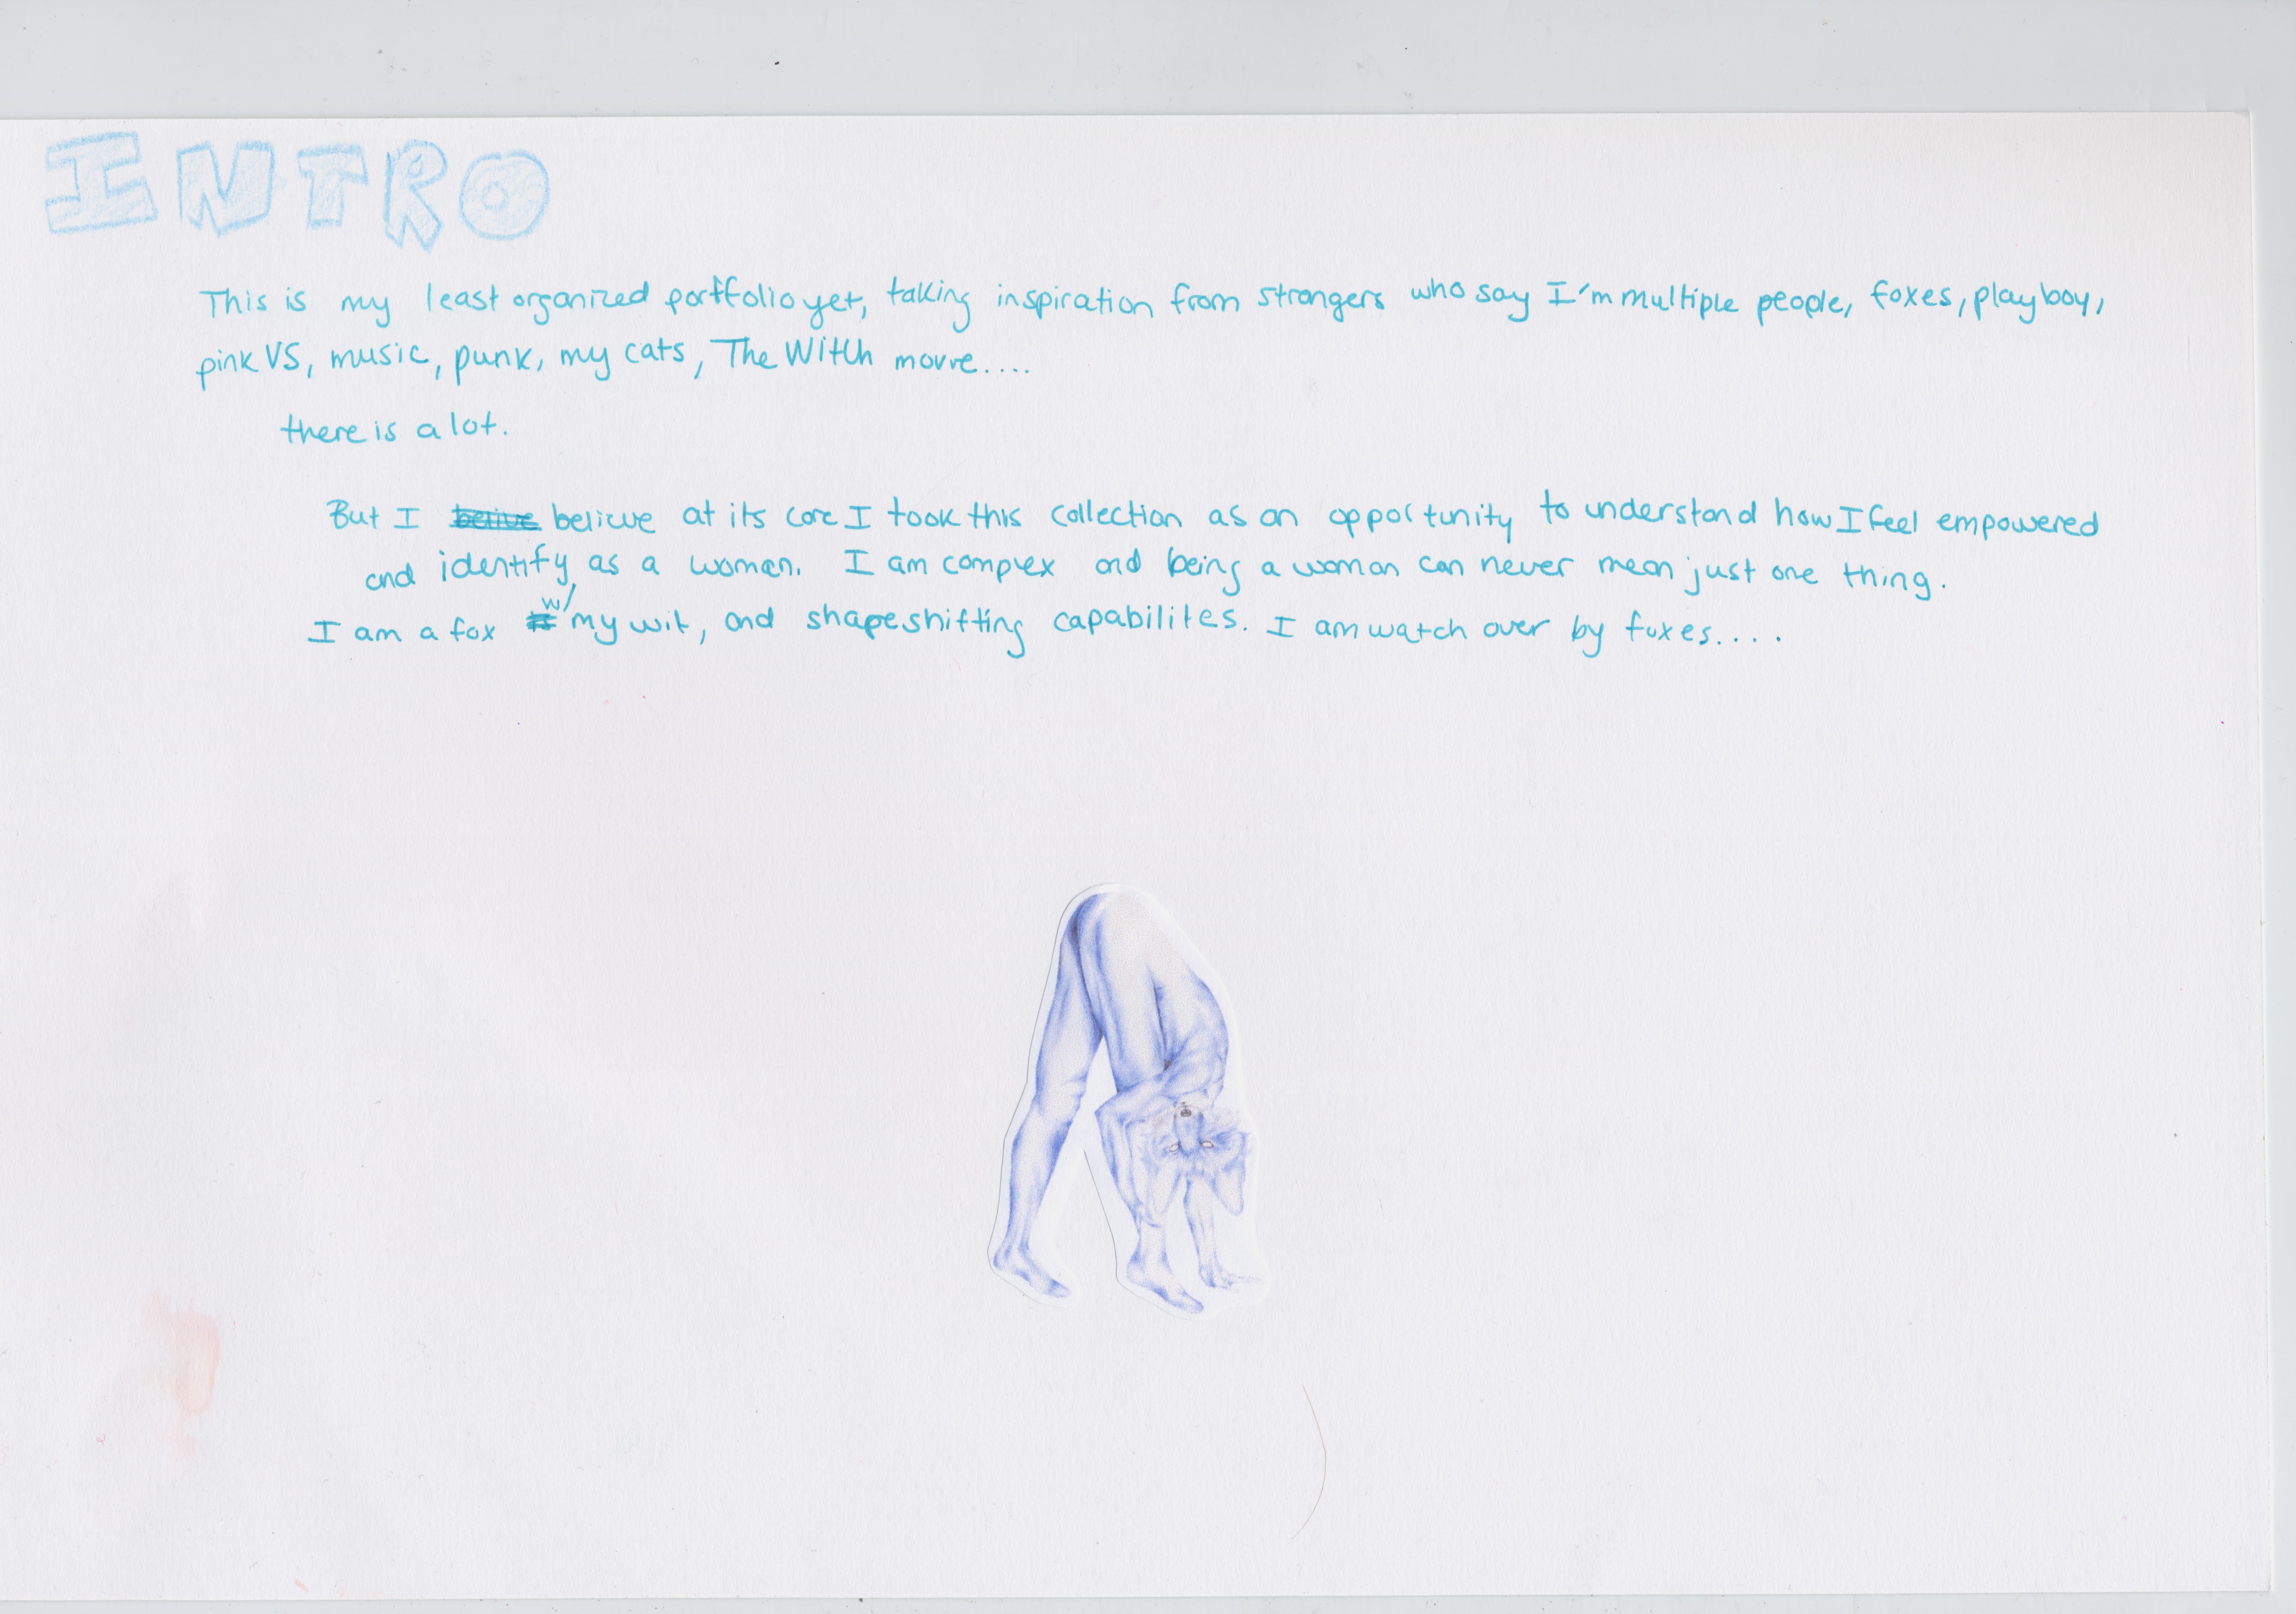 INTRO
This is my least organized portfolio yet, taking inspiration from strangers who say I'm multiple people, foxes, playboy,
pink VS, music, punk, my cats, The Witch movie....
there is a lot.
But I belive believe at its core I took this collection as an opportunity to understand how I feel empowered
and identify as a woman. I am complex and being a woman can never mean just one thing.
I am a fox w/ my wit, and shapeshifting capabilites. I am watch over by foxes....